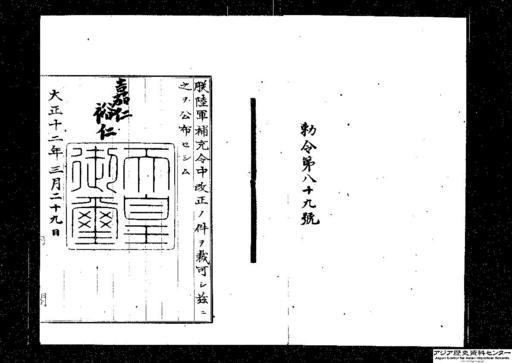 勅令第八十九號
朕陸軍補充令中改正ノ件ヲ裁可シ茲ニ
之ヲ公布セシム
嘉仁
裕仁
天皇
御璽
大正十二年三月二十九日
アジア歴史資料センター
Japan Center for Asian Historical Records